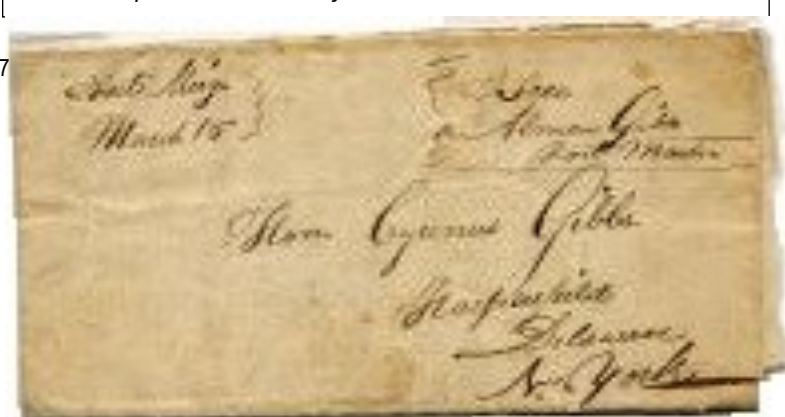 7
Forts Meigs
March 15
Free
Almon Gibbs
Post Master
Hon Cyrenus Gibbs
Harpersfield
Delaware
N. York